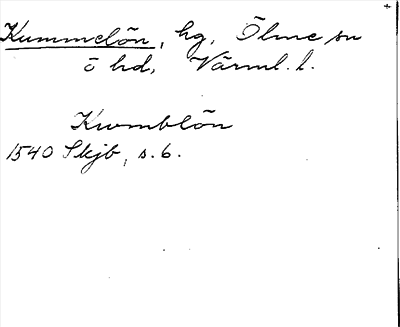 Kummelön, hg, Ölme sn
ö hd, Värml. l.
Kwmblön
1540 Skjb, s. 6.